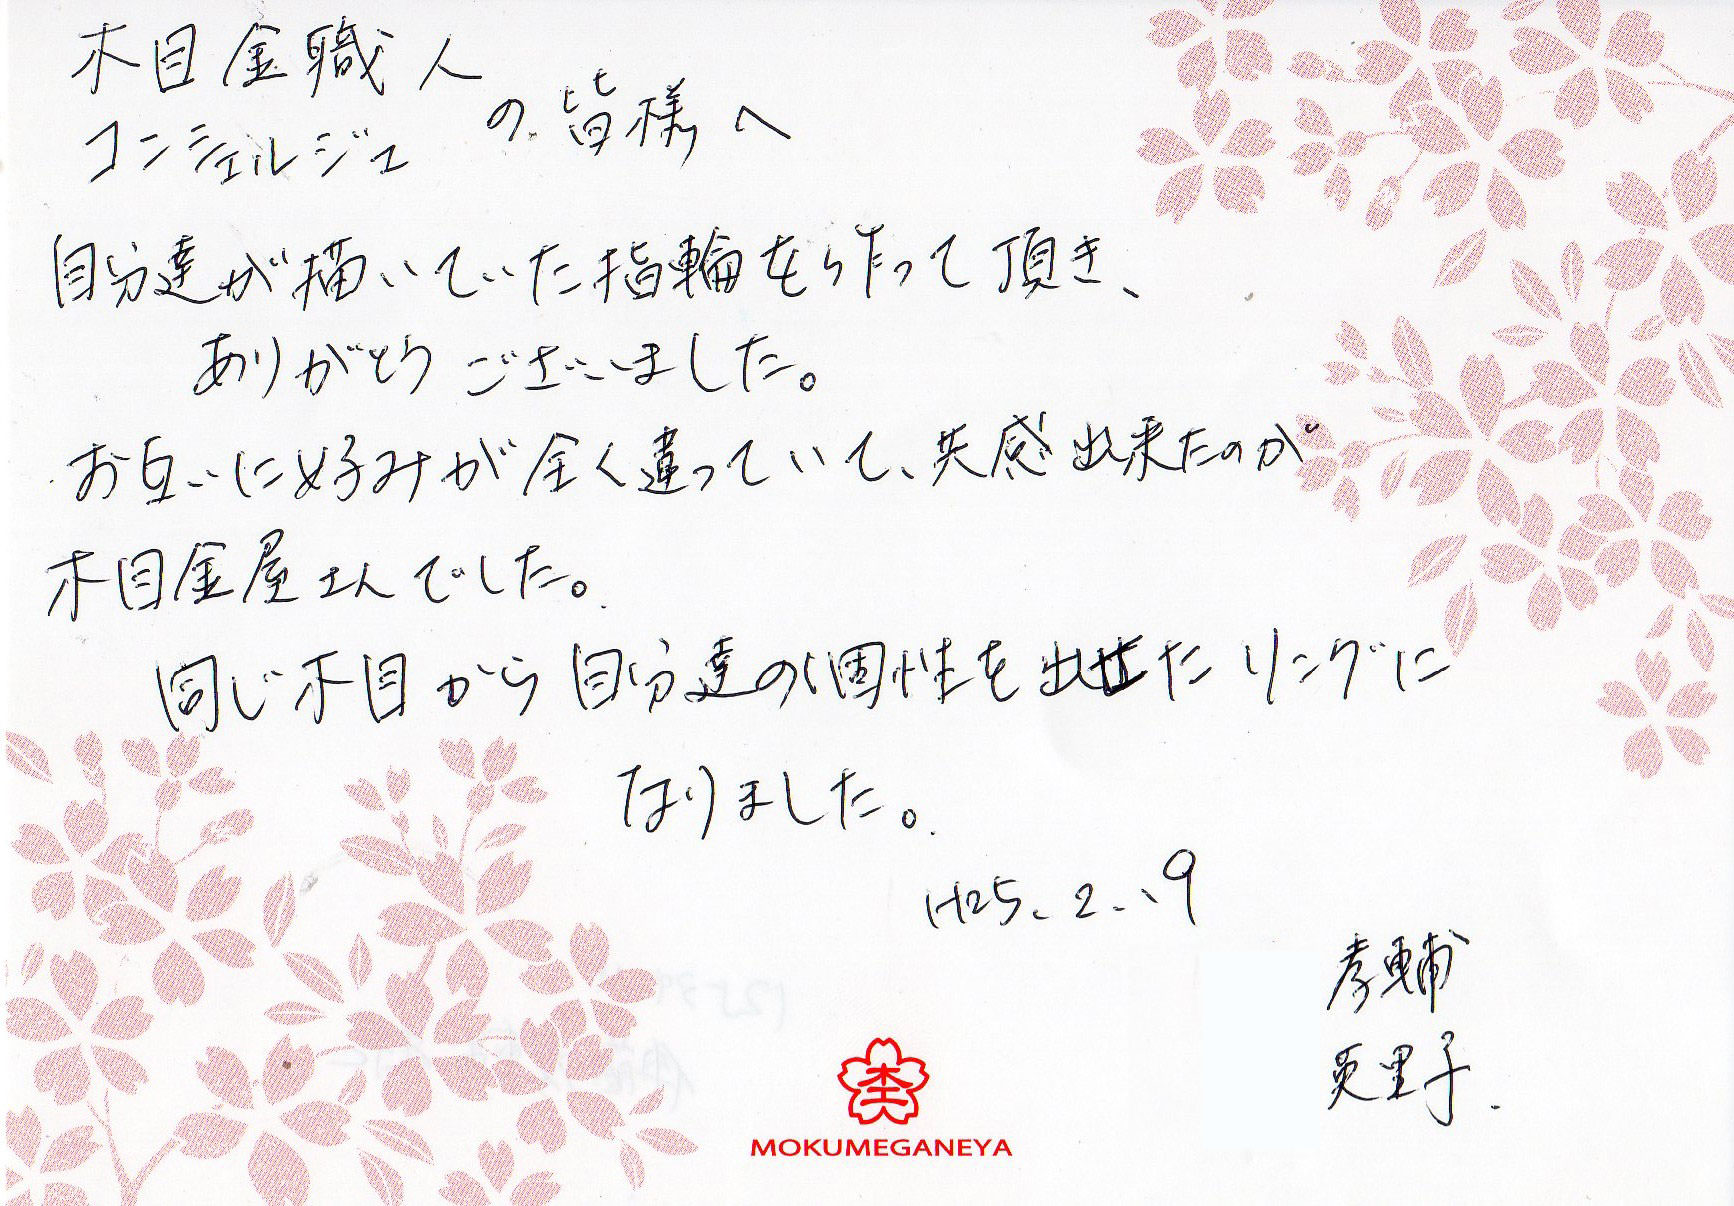 木目金職人
コンシェルジュ の皆様へ
自分達が描いていた指輪を作って頂き、
ありがとうございました。
お互いに好みが全く違っていて、共感出来たのが
木目金屋さんでした。
同じ木目から自分達の個性を出せたリングに
なりました。
H25.2.19
孝輔
英里子.
MOKUMEGANEYA